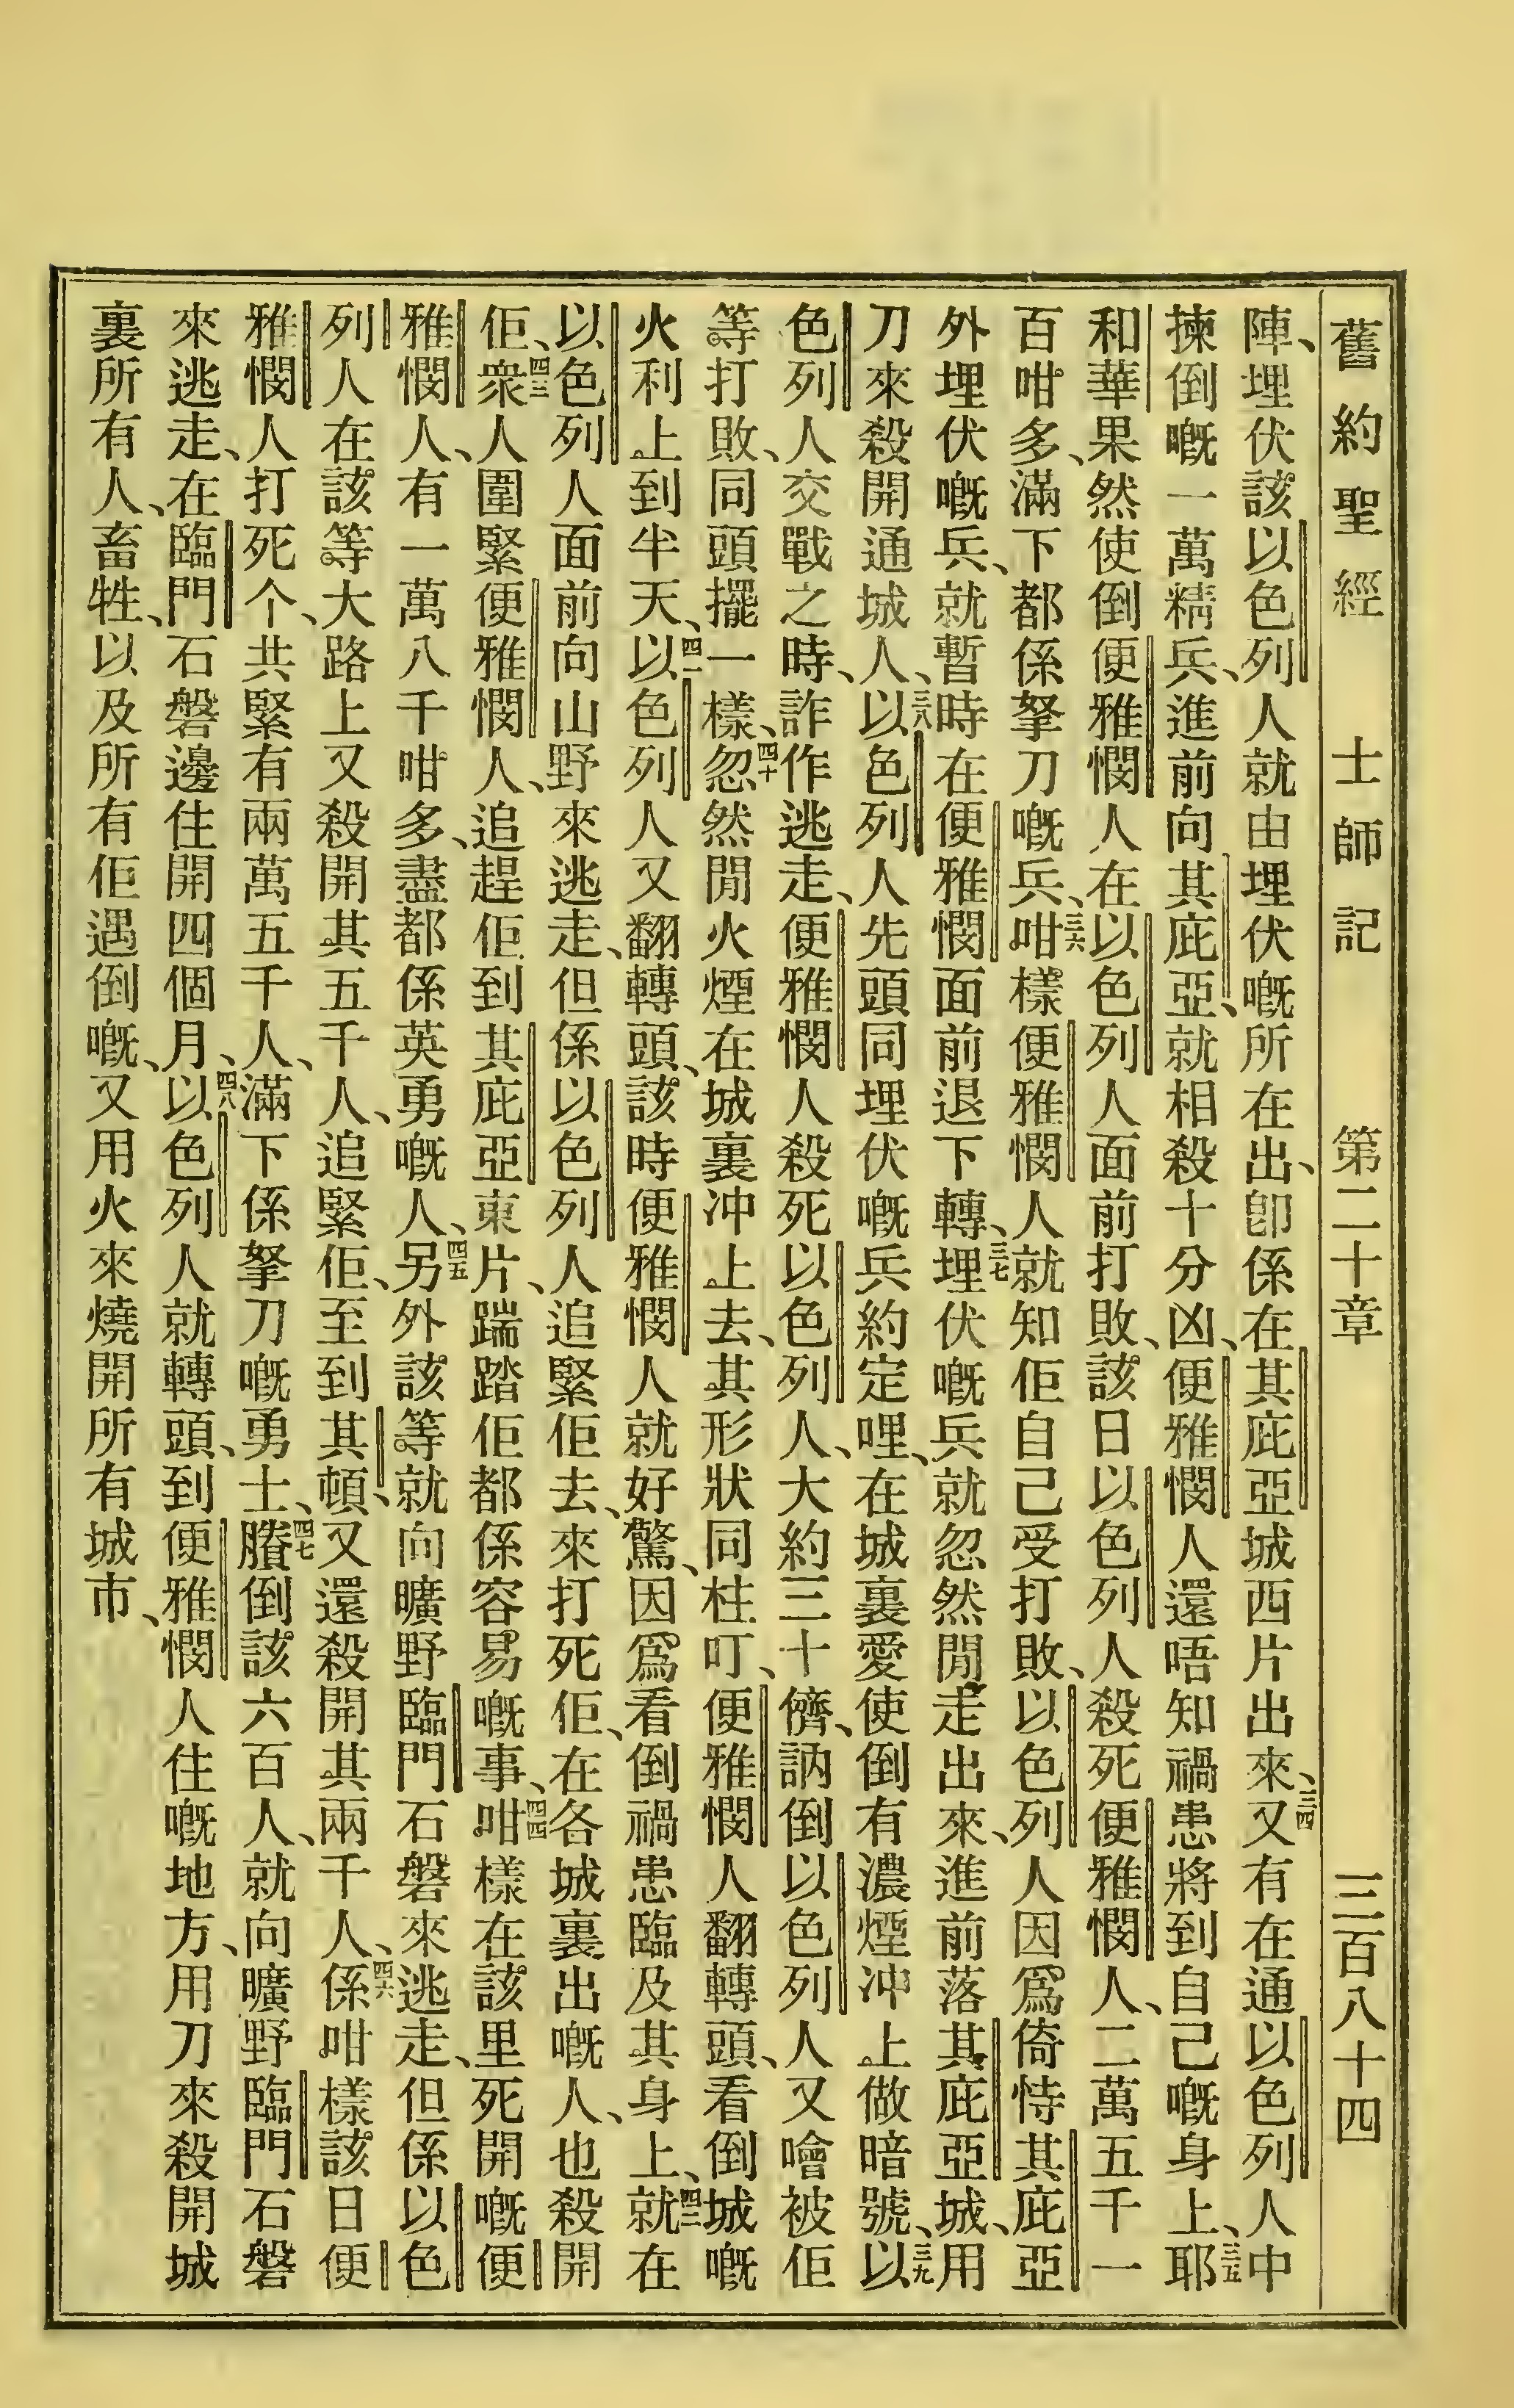 舊約聖經 士師記 第二十章 三百八十四
陣、埋伏該以色列人就由埋伏嘅所在出、卽係在其庇亞城西片出來、三四又有在通以色列人中
揀倒嘅一萬精兵、進前向其庇亞、就相殺十分凶、便雅憫人還唔知禍患將到自己嘅身上、三五耶
和華果然使倒便雅憫人在以色列人面前打敗、該日以色列人殺死便雅憫人、二萬五千一
百咁多、滿下都係拏刀嘅兵、三六咁樣便雅憫人就知佢自己受打敗、以色列人因爲倚恃其庇亞
外埋伏嘅兵、就暫時在便雅憫面前退下轉、三七埋伏嘅兵就忽然閒走出來、進前落其庇亞城、用
刀來殺開通城人、三八以色列人先頭同埋伏嘅兵約定哩、在城裏愛使倒有濃煙沖上做暗號、三九以
色列人交戰之時、詐作逃走、便雅憫人殺死以色列人、大約三十儕、訥倒以色列人又噲被佢
等打敗、同頭擺一樣、四十忽然閒火煙在城裏沖上去、其形狀同柱叮、便雅憫人翻轉頭、看倒城嘅
火利上到半天、四一以色列人又翻轉頭、該時便雅憫人就好驚、因爲看倒禍患臨及其身上、四二就在
以色列人面前向山野來逃走、但係以色列人追緊佢去、來打死佢、在各城裏出嘅人、也殺開
佢、四三衆人圍緊便雅憫人、追趕佢到其庇亞東片、踹踏佢都係容易嘅事、四四咁樣在該里死開嘅便
雅憫人、有一萬八千咁多、盡都係英勇嘅人、四五另外該等就向曠野臨門石磐來逃走、但係以色
列人在該等大路上又殺開其五千人、追緊佢、至到其頓、又還殺開其兩千人、四六係咁樣該日便
雅憫人打死个、共緊有兩萬五千人、滿下係拏刀嘅勇士、四七賸倒該六百人、就向曠野臨門石磐
來逃走、在臨門石磐邊住開四個月、四八以色列人就轉頭、到便雅憫人住嘅地方、用刀來殺開城
裏所有人、畜牲、以及所有佢遇倒嘅、又用火來燒開所有城市、